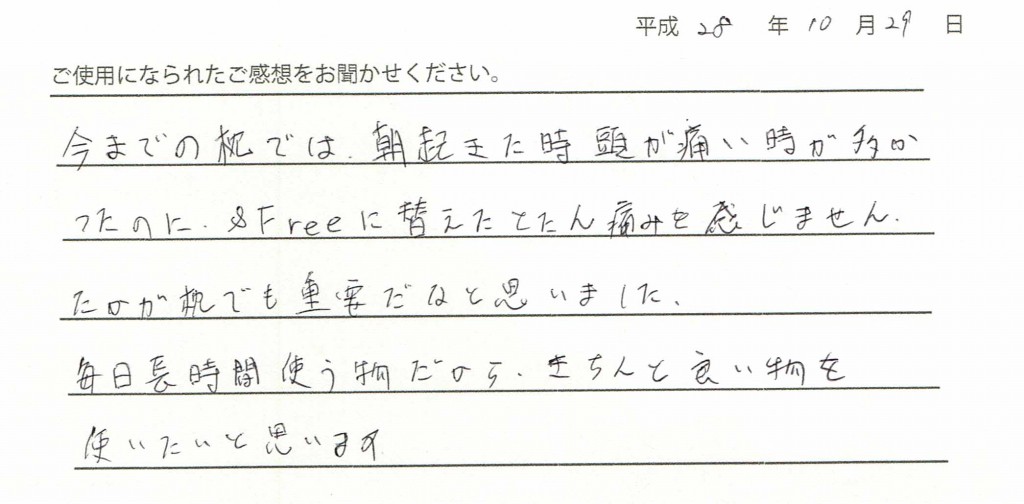 平成 28 年 10 月 29 日
ご使用になられたご感想をお聞かせください。
今までの枕では、朝起きた時頭が痛い時が多か
ったのに、&Freeに替えたとたん痛みを感じません。
たかが枕でも重要だなと思いました。
毎日長時間使う物だから、きちんと良い物を
使いたいと思います